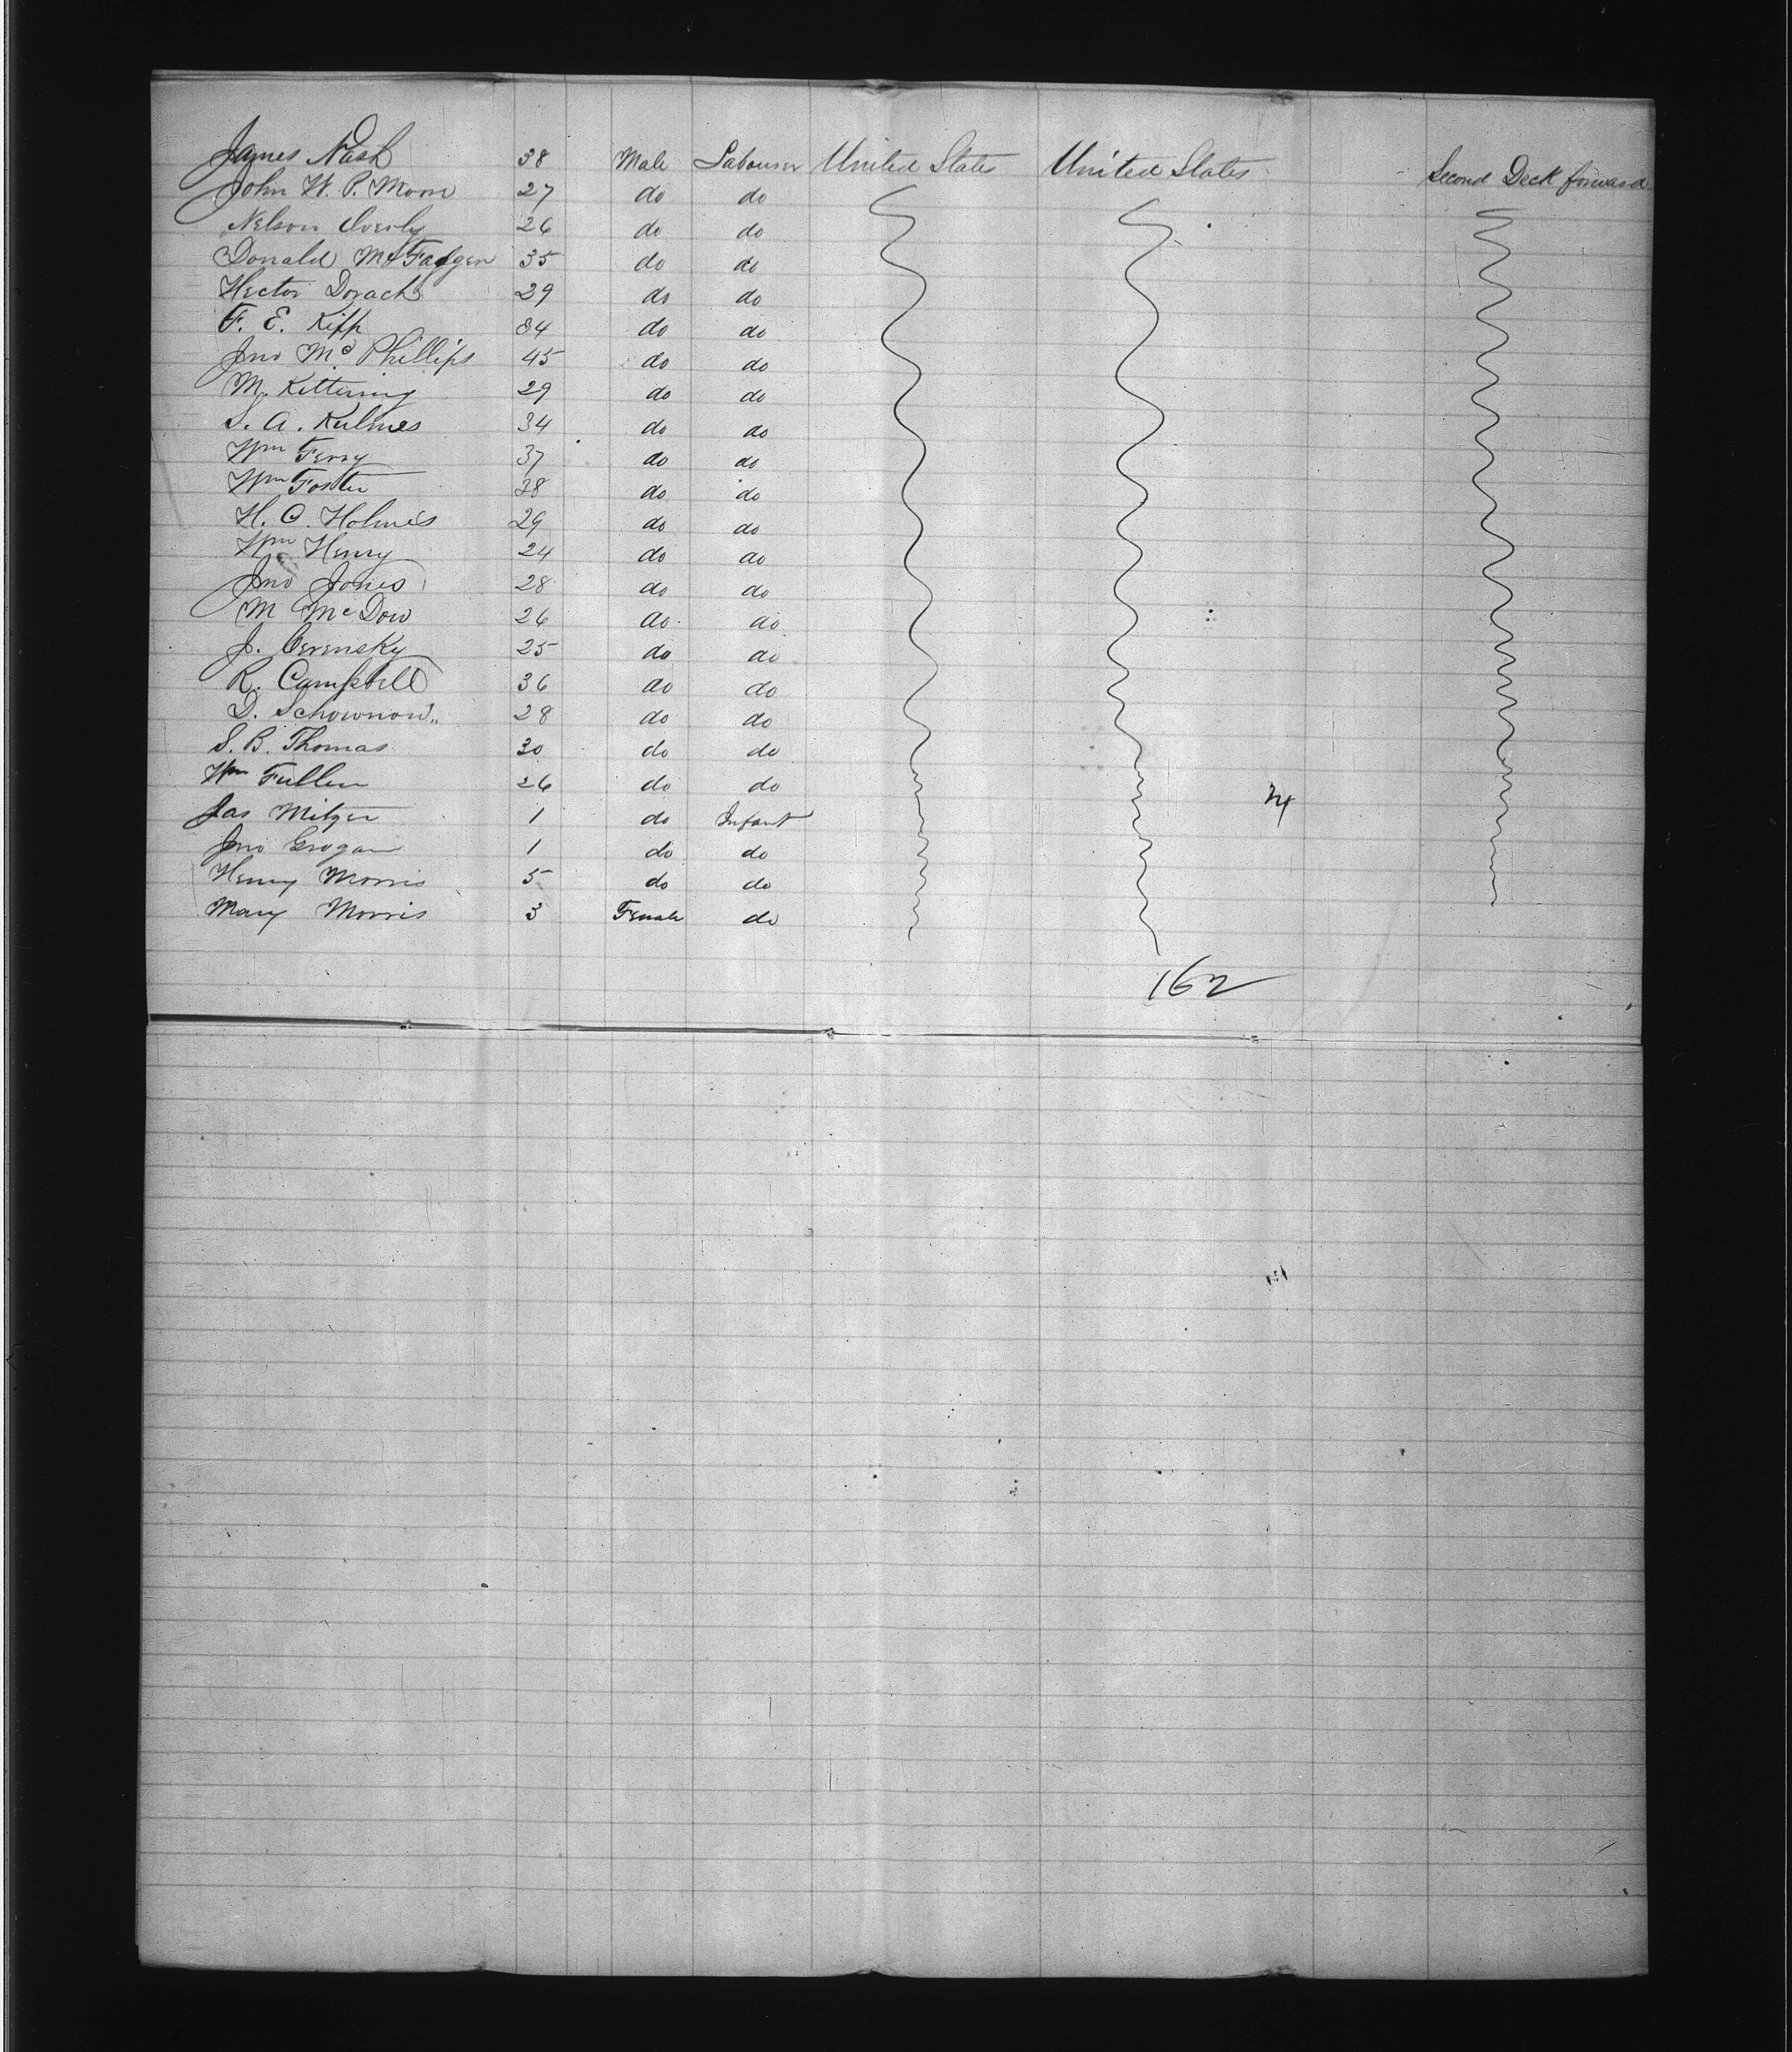 James Nash 38 Male Labourer United States United States Second Deck forward
John W. P. Moore 27 do do
Nelson 26 do do
Donald McFadgen 35 do do
Hector Dorach 29 do do
F. E. Kipp 34 do do
Jno Mc Phillips 45 do do
M. Kettering 29 do do
S. A. Kulmes 34 do do
Wm Ferry 37 do do
Wm Foster 28 do do
H. C. Holmes 29 do do
Wm Henry 24 do do
Jno Jones 28 do do
M McDow 26 do do
J. 25 do do
R. Campbell 36 do do
D. 28 do do
S. B. Thomas 30 do do
Wm Fullen 26 do do
Jas 1 do Infant
Jno Grogan 1 do do
Henry Morris 5 do do
Mary Morris 3 Female do
162